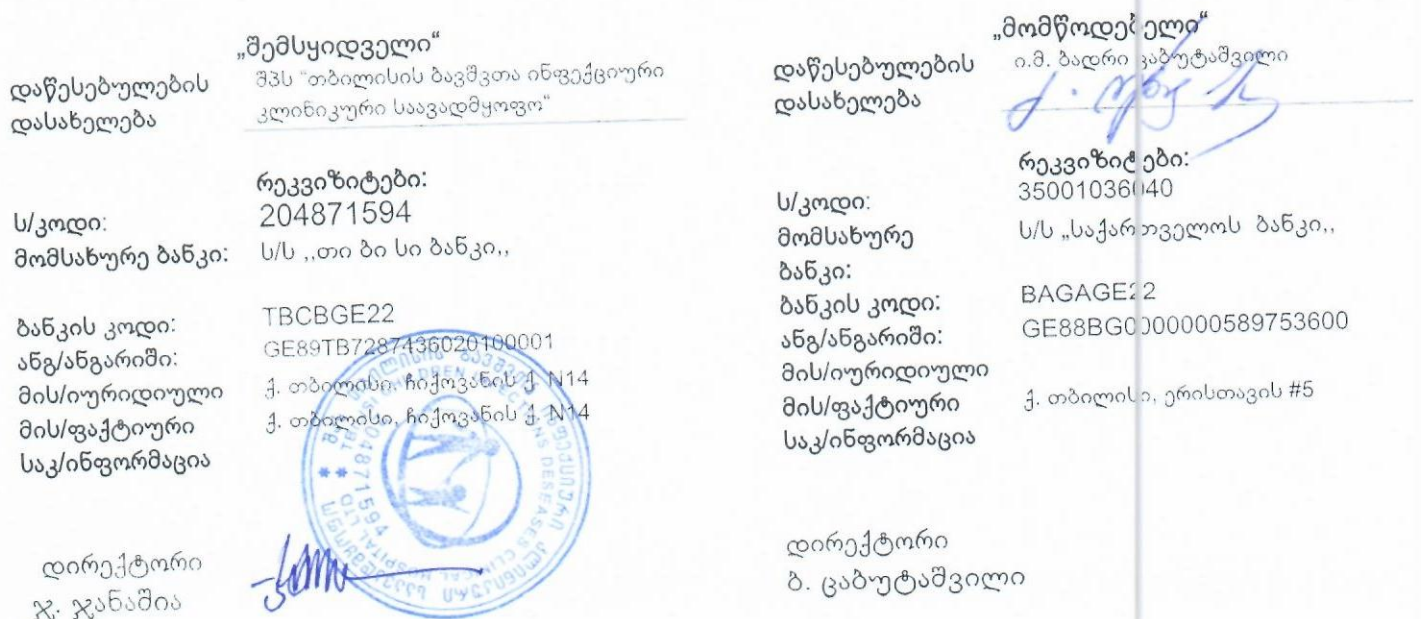 „შემსყიდველი“
დაწესებულების
დასახელება
შპს “თბილისის ბავშვთა ინფექციური
კლინიკური საავადმყოფო“
რეკვიზიტები:
ს/კოდი:
204871594
მომსახურე ბანკი:
ს/ს ,,თი ბი სი ბანკი,,
ბანკის კოდი:
TBCBGE22
ანგ/ანგარიში:
GE89TB7287436020100001
მის/იურიდიული
ქ. თბილისი, ჩიქოვანის ქ. N14
მის/ფაქტიური
ქ. თბილისი, ჩიქოვანის ქ. N14
საკ/ინფორმაცია
დირექტორი
ჯ. ჯანაშია
TBILISI CHILDREN INFECTIONS DESEASES CLINICAL HOSPITAL LTD
204871594
„მომწოდებელი“
დაწესებულების
დასახელება
ი.მ. ბადრი ცაბუტაშვილი
რეკვიზიტები:
ს/კოდი:
35001036040
მომსახურე
ბანკი:
ს/ს „საქართველოს ბანკი,,
ბანკის კოდი:
BAGAGE22
ანგ/ანგარიში:
GE88BG0000000589753600
მის/იურიდიული
მის/ფაქტიური
ქ. თბილისი, ერისთავის #5
საკ/ინფორმაცია
დირექტორი
ბ. ცაბუტაშვილი